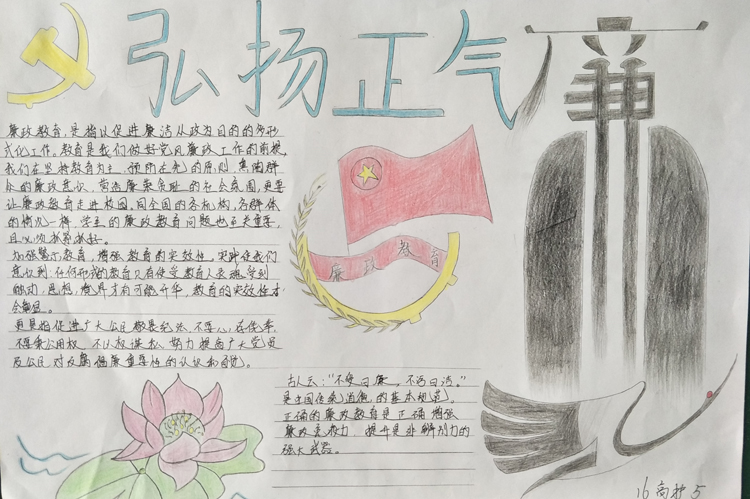 弘扬正气
廉
廉政教育，是指以促进廉洁从政为目的的多形
式化工作。教育是我们做好党风廉政工作的前提，
我们在坚持教育为主，预防在先的原则，熏陶群
众的廉政意识，营造廉荣贪耻的社会氛围，更要
让廉政教育走进校园。同全国的各机构，各群体
的情况一样，学生的廉政教育问题也至关重要，
且必须抓紧抓好。
加强警示教育，增强教育的实效性。实践使我们
意识到：任何形式的教育只有使受教育人灵魂受到
触动，思想，境界才有可能升华，教育的实效性才
会彰显。
更是指促进广大公民
不得乘公用权，不以权谋私，努力提高广大党员
及公民，对反腐倡廉重要性的认识和自觉。
廉政教育
古人云：“不受曰廉，不污曰洁。”
是中国传统道德的基本规范。
正确的廉政教育是正确增强
廉政免疫力，提升是非辨别力的
强大武器。
16高护5